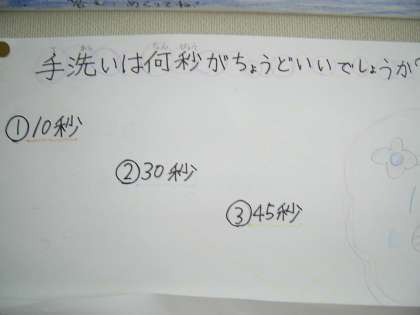 手洗いは何秒がちょうどいいでしょうか?
①10秒
②30秒
③45秒